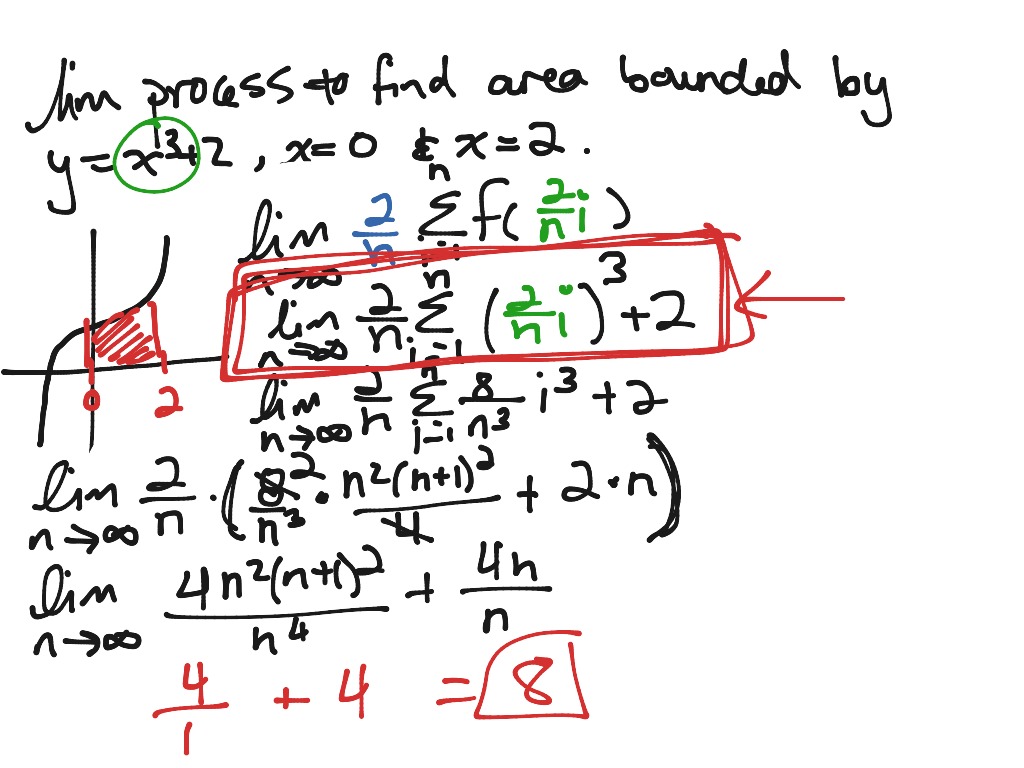 lim process to find area bounded by
y = x³ + 2 , x = 0 & x = 2 .
lim n→∞ 2/n n Σ i=1 f( 2/n i )
lim n→∞ 2/n n Σ i=1 ( 2/n i )³ + 2
0 2
lim n→∞ 2/n n Σ i=1 8/n³ i³ + 2
lim n→∞ 2/n · ( 8/n³ 2 · n²(n+1)²/4 + 2 · n )
lim n→∞ 4n²(n+1)²/n⁴ + 4n/n
4/1 + 4 = 8